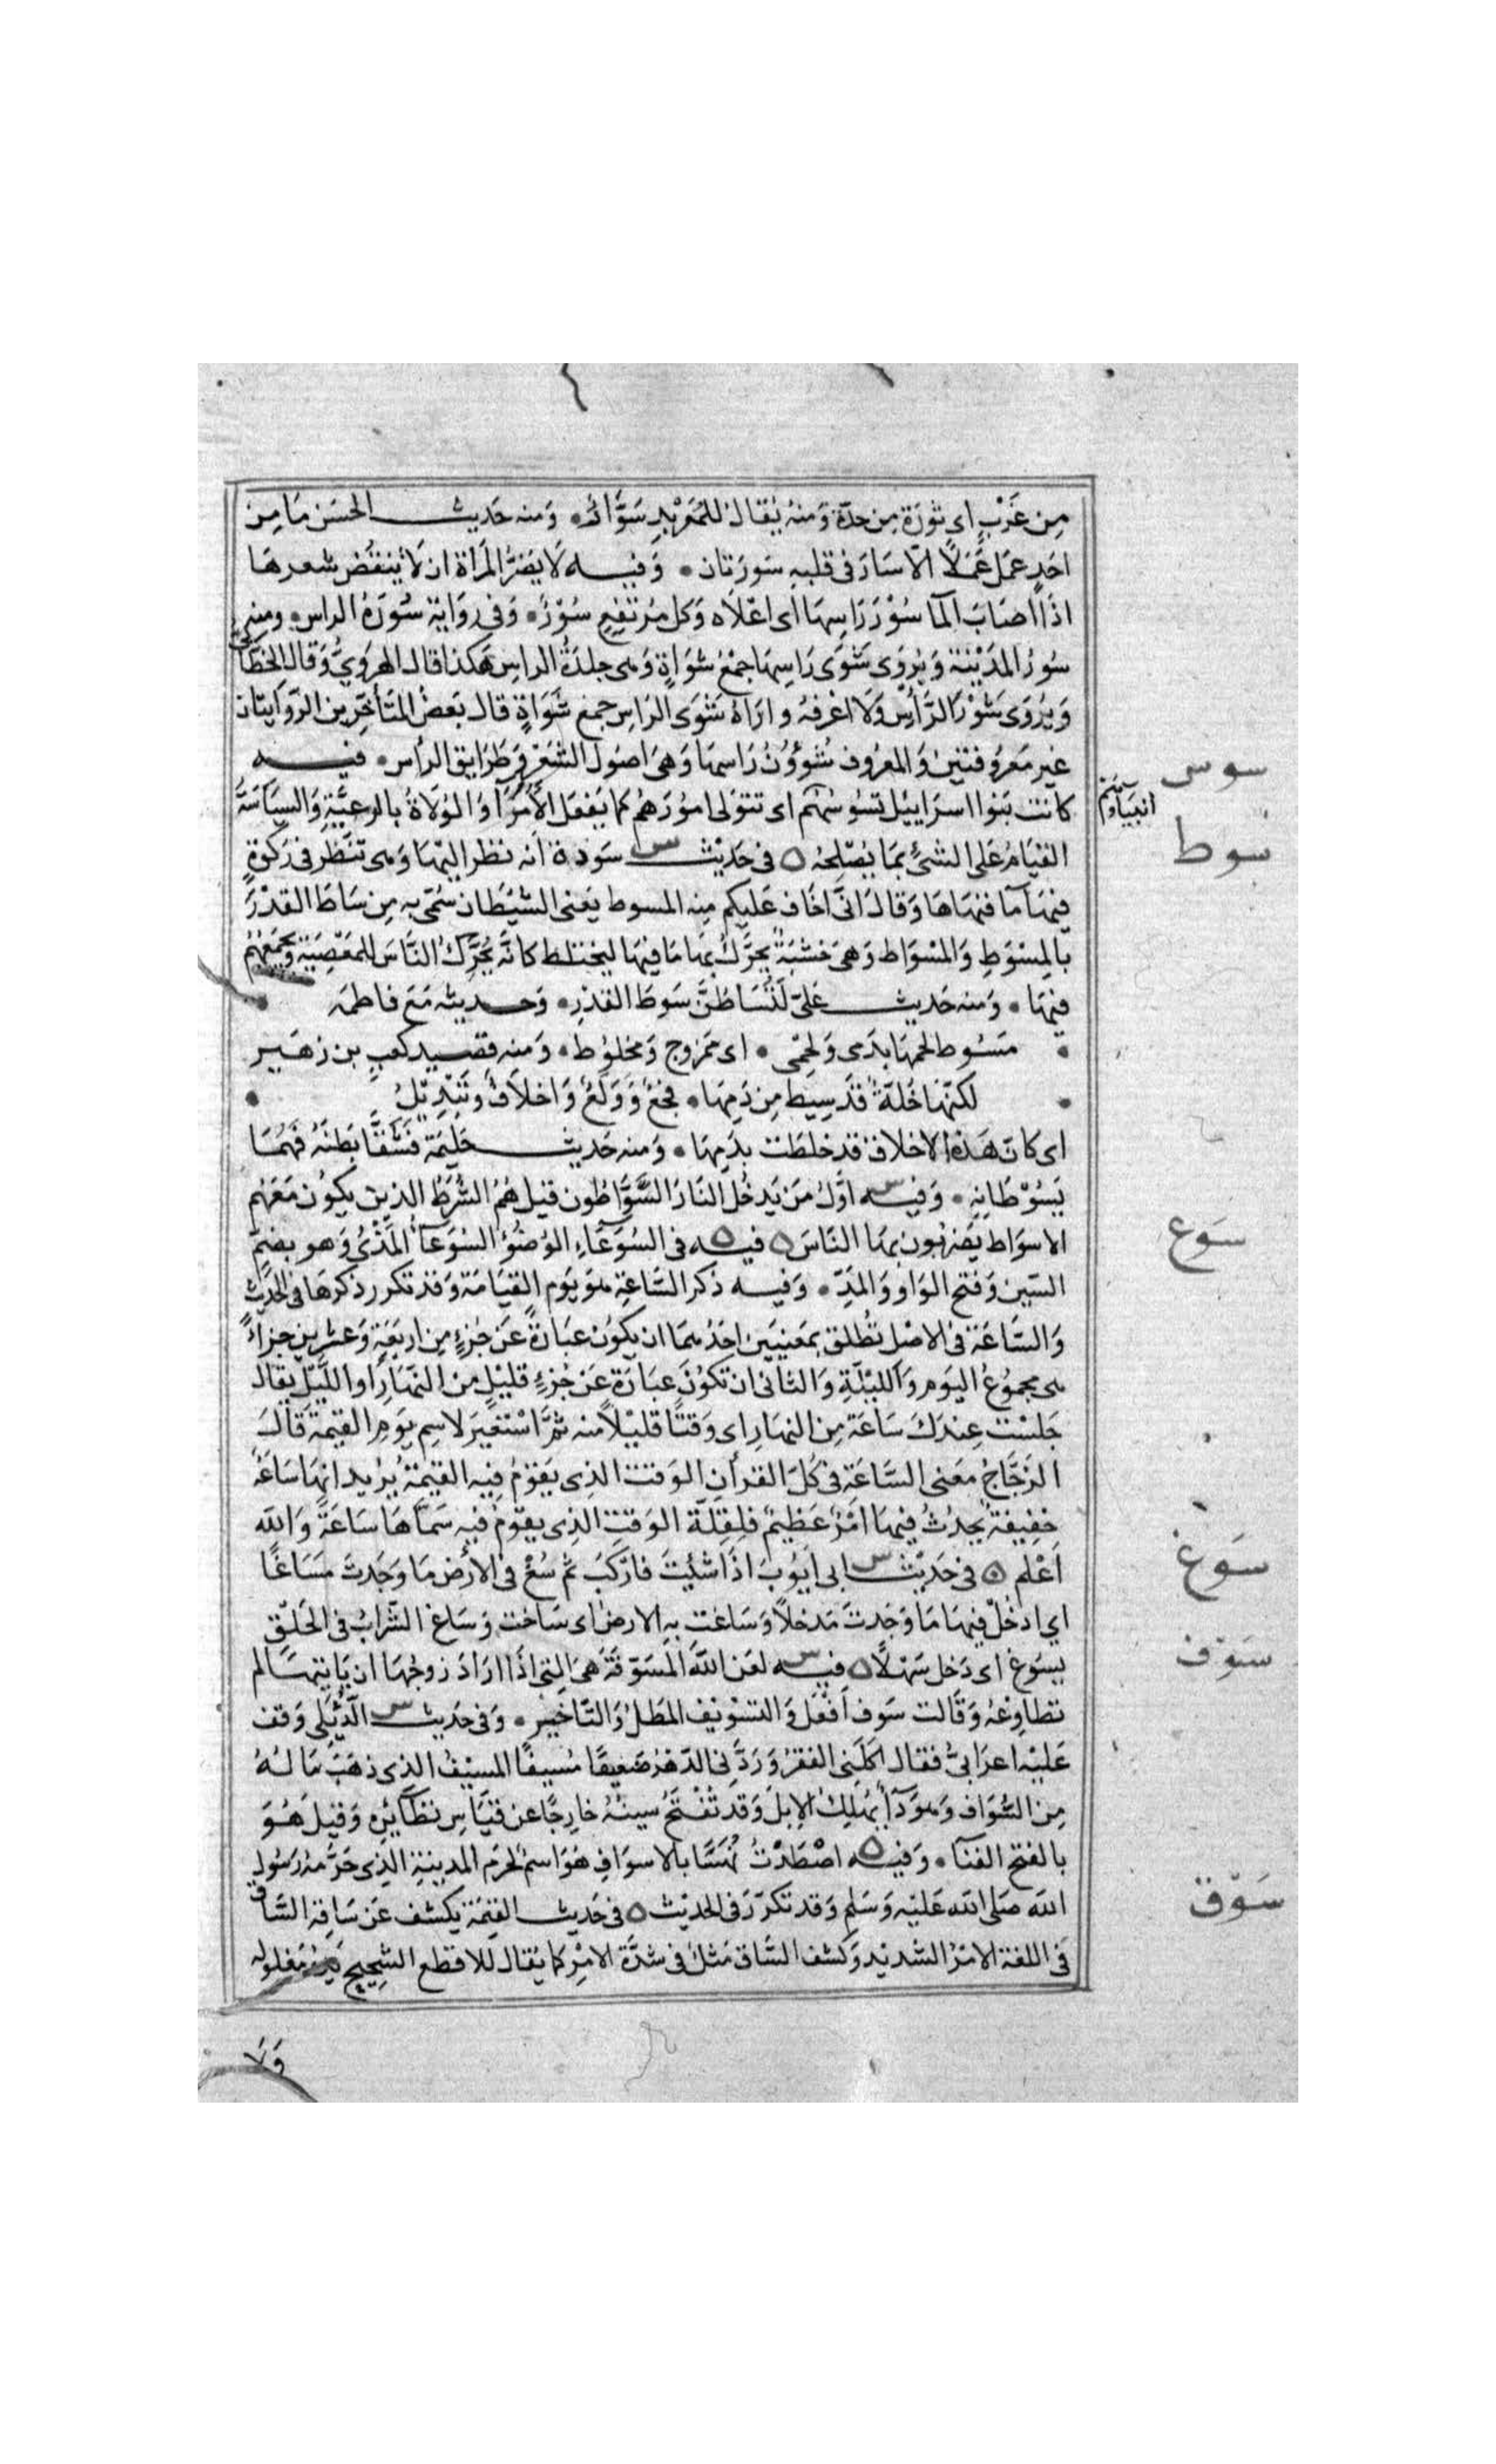 مِن غَرْبٍ اى ثَورَة مِن حدّة وَمنهُ يُقالُ للمُعَرْبِدِ سَوَّار وَمنه حَديث الحسَن مَا مِن
احَدٍ عمَل عَمَلًا الّا سَارَ فى قلبهِ سَورَتان وَفيه لَا يَضرُّ المَراة ان لَا تنقُضَ شعرهَا
اذَا اصَابَ المآ سُوْرَ رَاسِهَا اى اعْلَاه وَكل مُرْتفِعٍ سُوْرٌ وَفى رِوَاية سُورَةُ الراس ومنه
سُورُ المدَيْنة وَيُروَى شَوَى رَاسِهَا جمْعُ شوَاةٍ وَهى جلدَةُ الراسِ هكذا قال الهرَوىُّ وَقال الخطابى
وَيُروَى شَوْرَ الرَّأسِ وَلَا اعْرفهُ وارَاهُ شوَى الرَاسِ جمع شَوَاةٍ قال بَعضُ المتَأخّرين الرّوايتان
غير مَعرُوفتَين وَالمعرُوف شُؤُوْنُ رَاسهَا وَهىَ اصُولُ الشعَر وَطرَايق الرأس فيه
سوس
كانت بَنوا اسرَاييْل تَسُوسُهُم اى تتوَلى امُوْرَهُم كما يَفعَل الأمَرَآ وَالوُلَاةُ بالرعيَّةِ وَالسيَاسَةُ
انبيَاؤهُم
القيَامُ عَلى الشىْءِ بمَا يُصْلحُهُ فى حَديْث سَودة انه نظر اليْهَا وَهى تنظر فى رَكوَةٍ
سوط
فيهَا مآ فنهَاهَا وَقالَ انّى اخَاف عَليكم مِنه المسوط يَعنى الشيْطان سُمّى بهِ مِن سَاطَ القدْرَ
بالمِسْوَطِ وَالمسْوَاط وَهىَ خشبَةٌ يُحرَّكُ بهَا مَا فِيْهَا ليختلط كانَّه يُحرّكُ النَّاسَ للمَعْصِيَةِ وَيجمَعُهُم
فيهَا وَمنه حَديث عَلىّ لَتُسَاطُنَّ سَوطَ القدْرِ وَحديثه مَع فاطمَه
مَسُوط لحمُهَا بدَمى وَلحْمى اى ممزوج وَمخلوُط وَمنه قصيد كعبٍ بن زهَير
لكنَّهَا خُلّةٌ قدْ سِيطَ مِن دَمِهَا فجْعٌ وَوَلَعٌ وَاخلَافٌ وَتبْدِيْلُ
اى كانّ هَذهِ الاخلاق قد خلطَت بدَمِهَا وَمنه حَديث حَليْمَة فَشَقَّا بَطنَهُ فَهُمَا
يَسُوْطَانِهِ وَفيه اوَّلُ مَن يَدخُل النَّارَ السَّوَّاطُون قيل هُمُ الشُّرَط الذين يَكوُن مَعَهُم
الاسوَاط يَضربُون بهَا النَّاسَ فيه فى السُّوَعَآءِ الوُضُوءُ السُّوَعَآءُ المَذْىُ وَهو بضمّ
سَوع
السّين وَفتح الوَاو وَالمَدِّ وَفيه ذكر السَّاعَةِ هوَ يَوم القيَامَة وَقد تكرر ذكرهَا فى الحَديْث
وَالسَّاعَة فى الاصْل تُطلق بمَعنيَين احَدُهمَا ان يكوُن عبَارةً عَن جُزءٍ مِن اربَعَةٍ وَعشرين جزأً
هى مجموُع اليَوم وَالليْلَةِ وَالثانى ان تكوُنَ عبَارَة عَن جُزءٍ قليْلٍ من النهَارِ او اللَّيْل يقالُ
جَلسْت عِندَكَ سَاعَة مِن النهارِ اى وَقتًا قليْلاً منه ثمَّ اسْتعيرَ لاسم يوَم القيمَة قالَ
الزَّجّاجُ مَعنى السَّاعَة فى كلّ القرآن الوَقت الذِى يَقوُمُ فيه القيمَةُ يُرْيد انهَا سَاعَةٌ
خفِيفَةٌ يحدُثُ فيهَا امْرٌ عَظيْمٌ فلِقلَّة الوَقتِ الذِى يقوُمُ فيهِ سَمَّاهَا سَاعَةً وَالله
اعْلم فى حَديْث ابى ايّوُبَ اذَا شئتَ فاركَبَ ثم سُغْ فى الأرْض مَا وَجَدتَ مَسَاغًا
سَوغ
اي ادخُلْ فيهَا مَا وَجَدتَ مَدخلاً وَسَاغت بهِ الارض اى سَاخت وَسَاغ الشَّرابُ فى الحَلْق
يسوَغ اى دَخل سَهْلاً فيه لعَن اللهُ المُسَوّفَة هىَ التى اذَا ارَادَ زوجُهَا ان يَاتِيَهَا لم
سَوف
تطاوِعهُ وَقالت سَوف اَفعَل وَالتسْويف المَطلُ وَالتَّاخيْر وَفى حَديث الدُّئِلى وَقف
عَليْه اعرابىٌّ فقال اكلَنى الفقرُ وَرَدَّنى الدّهرُ ضَعيفًا مُسيفًا المسيْفُ الذى ذهَبَ مَالهُ
مِن السُّوَاف وَهوَ دَآءٌ يُهلِكُ الإبلَ وَقد تُفتَحُ سينهُ خارِجًا عن قيَاسِ نظَآئِرِهِ وَقيلَ هُوَ
بالفتح الفنآ وَفيه اصْطَدْتُ نُهَسًا بالاسوَافِ هُوَ اسمٌ لحرَم المدينةِ الذى حَرَّمهُ رَسُول
الله صَلى الله عَليْه وَسَلم وَقد تكرّرَ فى الحديْث فى حَديث القيمَة يكشف عَن سَاقه السَّاقُ
سَوق
فى اللغة الامْرُ الشديْد وَكشف السَّاق مَثلٌ فى شدَّة الامْرِ كما يُقال للاقطع الشحِيح يَدُهُ مَغلوله
وَلَا